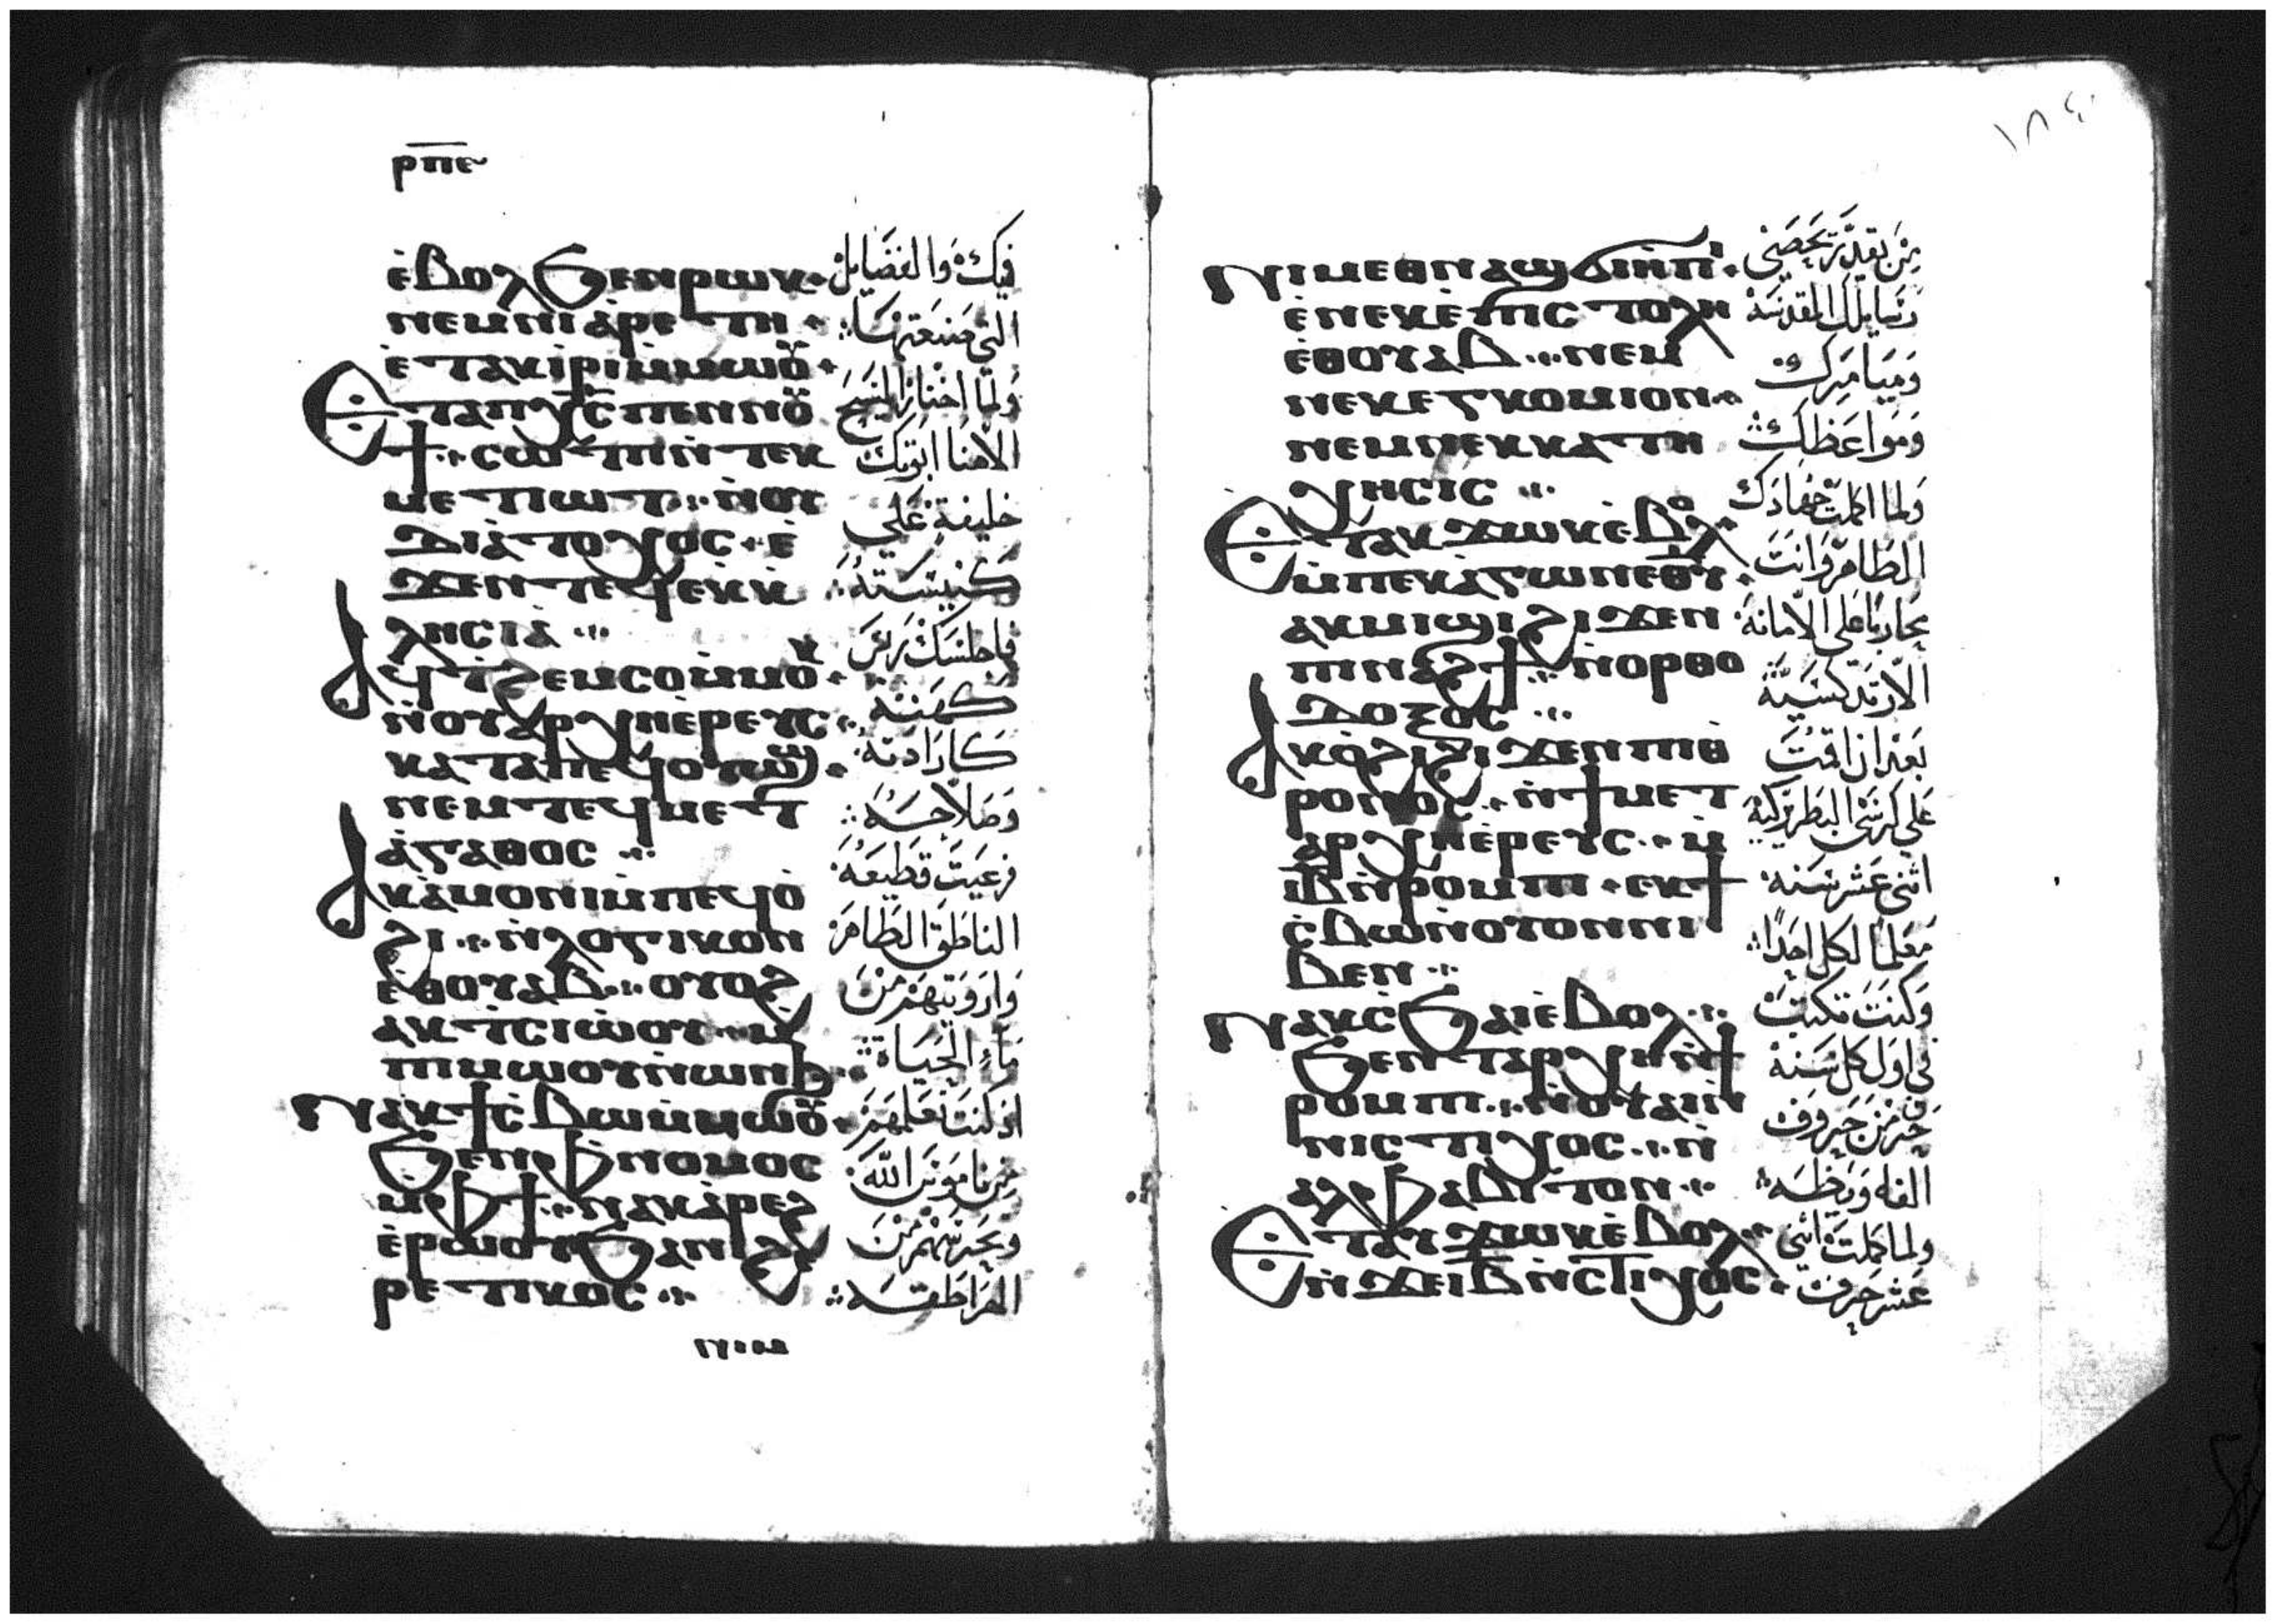 ⲣⲡⲉ
ⲉ̀ⲃⲟⲗ ϧⲉⲛⲣⲱⲕ
ⲛⲉⲙⲛⲓⲁ̀ⲣⲉⲧⲏ
ⲉ̀ⲧⲁⲕⲓⲣⲓⲙ̀ⲙⲱⲟⲩ
ⲉⲧⲁⲡⲭ̅ⲥ̅ ⲡⲉⲛⲛⲟⲩ
ϯ ⲥⲱⲧⲡⲛ̀ⲧⲉⲕ
ⲙⲉⲧⲓⲱⲧ ⲛ̀ⲟⲩ
ⲇⲓⲁ̀ⲧⲟⲭⲟⲥ ⲉ̀
ϫⲉⲛⲧⲉϥⲉⲕⲕ
ⲗⲏⲥⲓⲁ̀
ⲁϥⲧϩⲉⲙⲥⲟⲙ̀ⲙⲟⲕ
ⲛ̀ⲟⲩⲁⲣⲭⲏⲉ̀ⲣⲉⲩⲥ
ⲕⲁⲧⲁⲡⲉϥⲟⲩⲱϣ
ⲛⲉⲙⲧⲉϥⲙⲉⲧ
ⲁ̀ⲅⲁⲑⲟⲥ
ⲁⲕⲁ̀ⲙⲟⲛⲓⲙ̀ⲡⲉϥⲟ̀
ϩⲓ ⲛ̀ⲗⲟⲅⲓⲕⲟⲛ
ⲉ̀ⲑⲟⲩⲁⲃ ⲟⲩⲟϩ
ⲁⲕⲧ̀ⲥⲓⲱ̀ⲟⲩ ⲙ̀
ⲡⲓⲙⲱⲟⲩⲛ̀ⲱⲛϧ
ⲛⲁⲕϯⲥ̀ⲃⲱⲙ̀ⲙⲱⲟⲩ
ϧⲉⲛⲫⲛⲟⲙⲟⲥ
ⲙ̀ⲫϯ ⲛⲁⲕⲁ̀ⲣⲉϩ
ⲉ̀ⲣⲱⲟⲩ ϧⲁⲛⲓϩⲉ
ⲣⲉⲧⲓⲕⲟⲥ
فيك والفضايل
التي صنعتها
ولما اختار المسيح
الاهنا ابوتك
خليفة على
كنيسته
فاجلسك رئيس
كهنه
كارادته
وصلاحه
فرعيت قطيعه
الناطق الطاهر
وارويتهم من
ماء الحياة
اذ كنت تعلمهم
من ناموس الله
وتحرسهم من
الهراطقه
١٨٤
ⲛⲓⲙⲉⲑⲛⲁϣϭⲓⲏ̀ⲡⲓ
ⲉ̀ⲛⲉⲕⲉ̀ⲡⲓⲥⲧⲟⲗⲏ
ⲉ̀ⲑⲟⲩⲁⲃ ⲛⲉⲙ
ⲛⲉⲕⲉⲅⲕⲟⲙⲓⲟⲛ
ⲛⲉⲙⲛⲉⲕⲕⲁⲧⲏ
ⲭⲏⲥⲓⲥ
ⲉⲧⲁⲕϫⲱⲕⲉ̀ⲃⲟⲗ
ⲙ̀ⲡⲉⲕⲁ̀ⲅⲱⲛⲉⲑⲩ
ⲁⲕⲙⲓϣⲓ ϩⲓϫⲉⲛ
ⲡⲓⲛⲁϩϯ ⲛ̀ⲟⲣⲑⲟ
ⲇⲟⲝⲟⲥ
ⲁⲕⲟ̀ϩⲓ ϩⲓϫⲉⲛⲡⲓⲑ
ⲣⲟⲛⲟⲥ ⲛ̀ϯⲙⲉⲧ
ⲁⲣⲭⲏⲉ̀ⲣⲉⲩⲥ ⲙ̀
ⲓ̅ⲃ̅ⲛ̀ⲣⲟⲙⲡⲓ ⲉⲕϯ
ⲥ̀ⲃⲱⲛ̀ⲟⲩⲟⲛⲛⲓ
ⲃⲉⲛ
ⲛⲁⲕⲥ̀ϧⲁⲓⲉ̀ⲃⲟⲗ
ϧⲉⲛⲧⲁⲣⲭⲏⲛ̀ϯ
ⲣⲟⲙⲡⲓ ⲛ̀ⲟⲩⲁⲓⲛ̀
ⲛⲓⲥⲧⲓⲭⲟⲥ ⲛ̀
ⲁⲗⲫⲁⲃⲓⲧⲟⲛ
ⲉⲧⲁⲩϫⲱⲕⲉ̀ⲃⲟⲗ
ⲛ̀ϫⲉⲓ̅ⲃ̅ⲛ̀ⲥⲧⲓⲭⲟⲥ
من يقدر يحصى
رسايلك المقدسه
وميامرك
ومواعظك
ولما اكملت جهادك
الطاهر وانت
محاربا على الامانه
الارتدكسيه
بعد ان اقمت
على كرسى البطريركيه
اثنى عشر سنه
معلما لكل احدا
وكنت تكتب
فى اول كل سنه
حرف من حروف
ولما كملت اثنى
عشر حرف